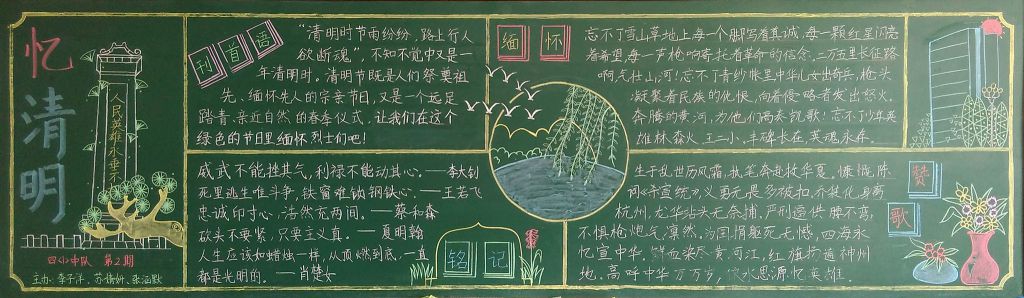 忆清明
人民英雄永垂不
四(1)中队 第2期
主办:李子洋、苏倩妍、张涵默
刊首语
“清明时节雨纷纷，路上行人
欲断魂”，不知不觉中又是一
年清明时。清明节既是人们祭奠祖
先、缅怀先人的宗亲节日，又是一个远足
踏青、亲近自然的春季仪式，让我们在这个
绿色的节日里缅怀烈士们吧!
威武不能挫其气，利禄不能动其心。——李大钊
死里逃生唯斗争，铁窗难锁钢铁心。——王若飞
忠诚印寸心，浩然充两间。——蔡和森
砍头不要紧，只要主义真。——夏明翰
人生应该如蜡烛一样，从顶燃到底，一直
都是光明的。——肖楚女
铭记
缅怀
忘不了雪山草地上每一个脚写着真诚，每一颗红星闪亮
着希望，每一声枪响寄托着革命的信念，二万五里长征路
啊，气壮山河!忘不了青纱帐里中华儿女出奇兵，枪头
凝聚着民族的仇恨，向着侵略者发出怒火。
奔腾的黄河，为他们高奏凯歌!忘不了少年英
雄林森火、王二小，丰碑长在，英魂永存。
赞歌
生于乱世历风霜，执笔奔赴救华夏。慷慨陈
词
杭州，龙华站头无奈捕，严刑逼供腰不弯，
不惧枪炮气凛然，治国捐躯死无憾，四海永
忆宣中华。鲜血染尽黄河江，红旗插遍神州
地。高呼中华万万岁，饮水思源忆英雄。